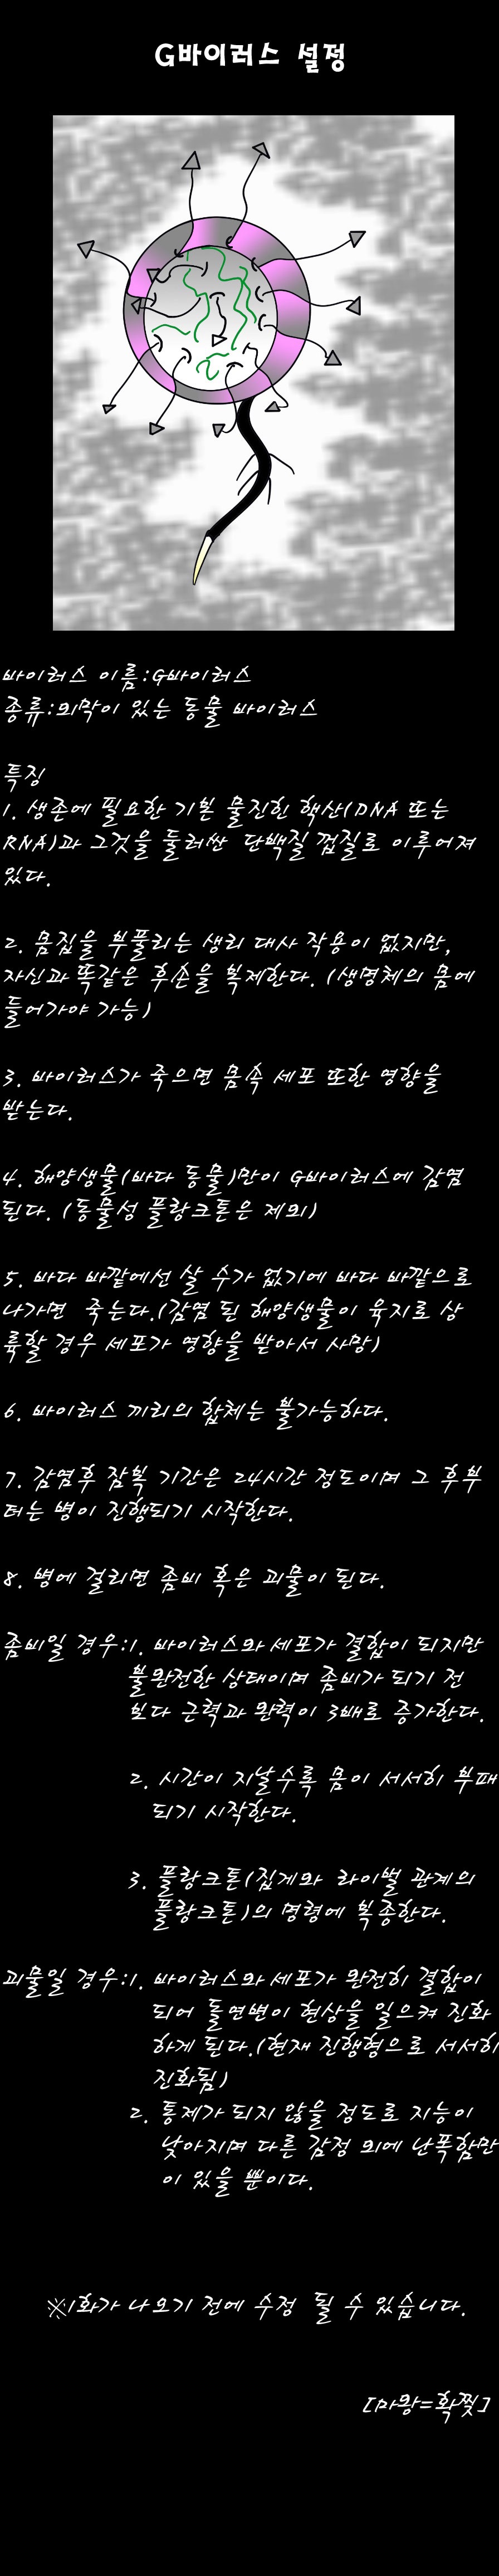 G바이러스 설정
바이러스 이름:G바이러스
종류:외막이 있는 동물 바이러스
특징
1. 생존에 필요한 기본 물진힌 핵산(DNA 또는
RNA)과 그것을 둘러싼 단백질 껍질로 이루어져
있다.
2. 몸집을 부풀리는 생리 대사 작용이 없지만,
자신과 똑같은 후손을 복제한다. (생명체의 몸에
들어가야 가능)
3. 바이러스가 죽으면 몸속 세포 또한 영향을
받는다.
4. 해양생물(바다 동물)만이 G바이러스에 감염
된다. (동물성 플랑크톤은 제외)
5. 바다 바깥에선 살 수가 없기에 바다 바깥으로
나가면 죽는다.(감염 된 해양생물이 육지로 상
륙할 경우 세포가 영향을 받아서 사망)
6. 바이러스 끼리의 합체는 불가능하다.
7. 감염후 잠복 기간은 24시간 정도이며 그 후부
터는 병이 진행되기 시작한다.
8. 병에 걸리면 좀비 혹은 괴물이 된다.
좀비일 경우:1. 바이러스와 세포가 결합이 되지만
불완전한 상태이며 좀비가 되기 전
보다 근력과 완력이 3배로 증가한다.
2. 시간이 지날수록 몸이 서서히 부패
되기 시작한다.
3. 플랑크톤(집게와 라이벌 관계의
플랑크톤)의 명령에 복종한다.
괴물일 경우:1. 바이러스와 세포가 완전히 결합이
되어 돌연변이 현상을 일으켜 진화
하게 된다.(현재 진행형으로 서서히
진화됨)
2. 통제가 되지 않을 정도로 지능이
낮아지며 다른 감정 외에 난폭함만
이 있을 뿐이다.
※1화가 나오기 전에 수정 될 수 있습니다.
[마왕=확찢]